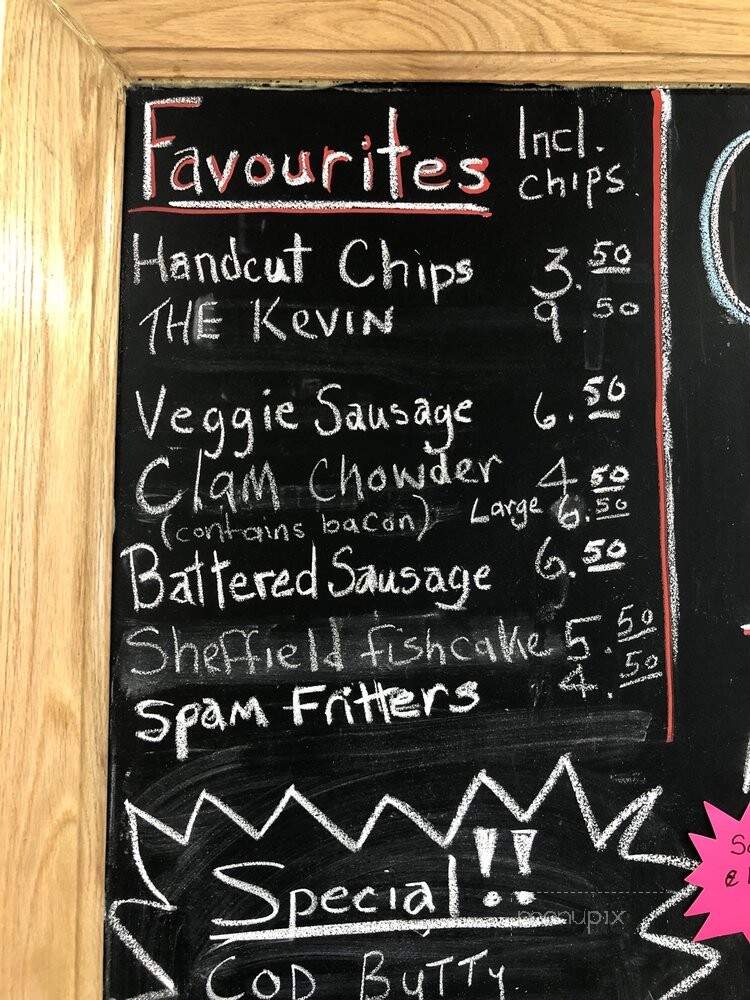 Favourites Incl. chips.
Handcut Chips 3.50
THE KEVIN 9.50
Veggie Sausage 6.50
Clam Chowder 4.50
(contains bacon) Large 6.50
Battered Sausage 6.50
Sheffield fishcake 5.50
Spam Fritters 4.50
Special!!
COD BUTTY